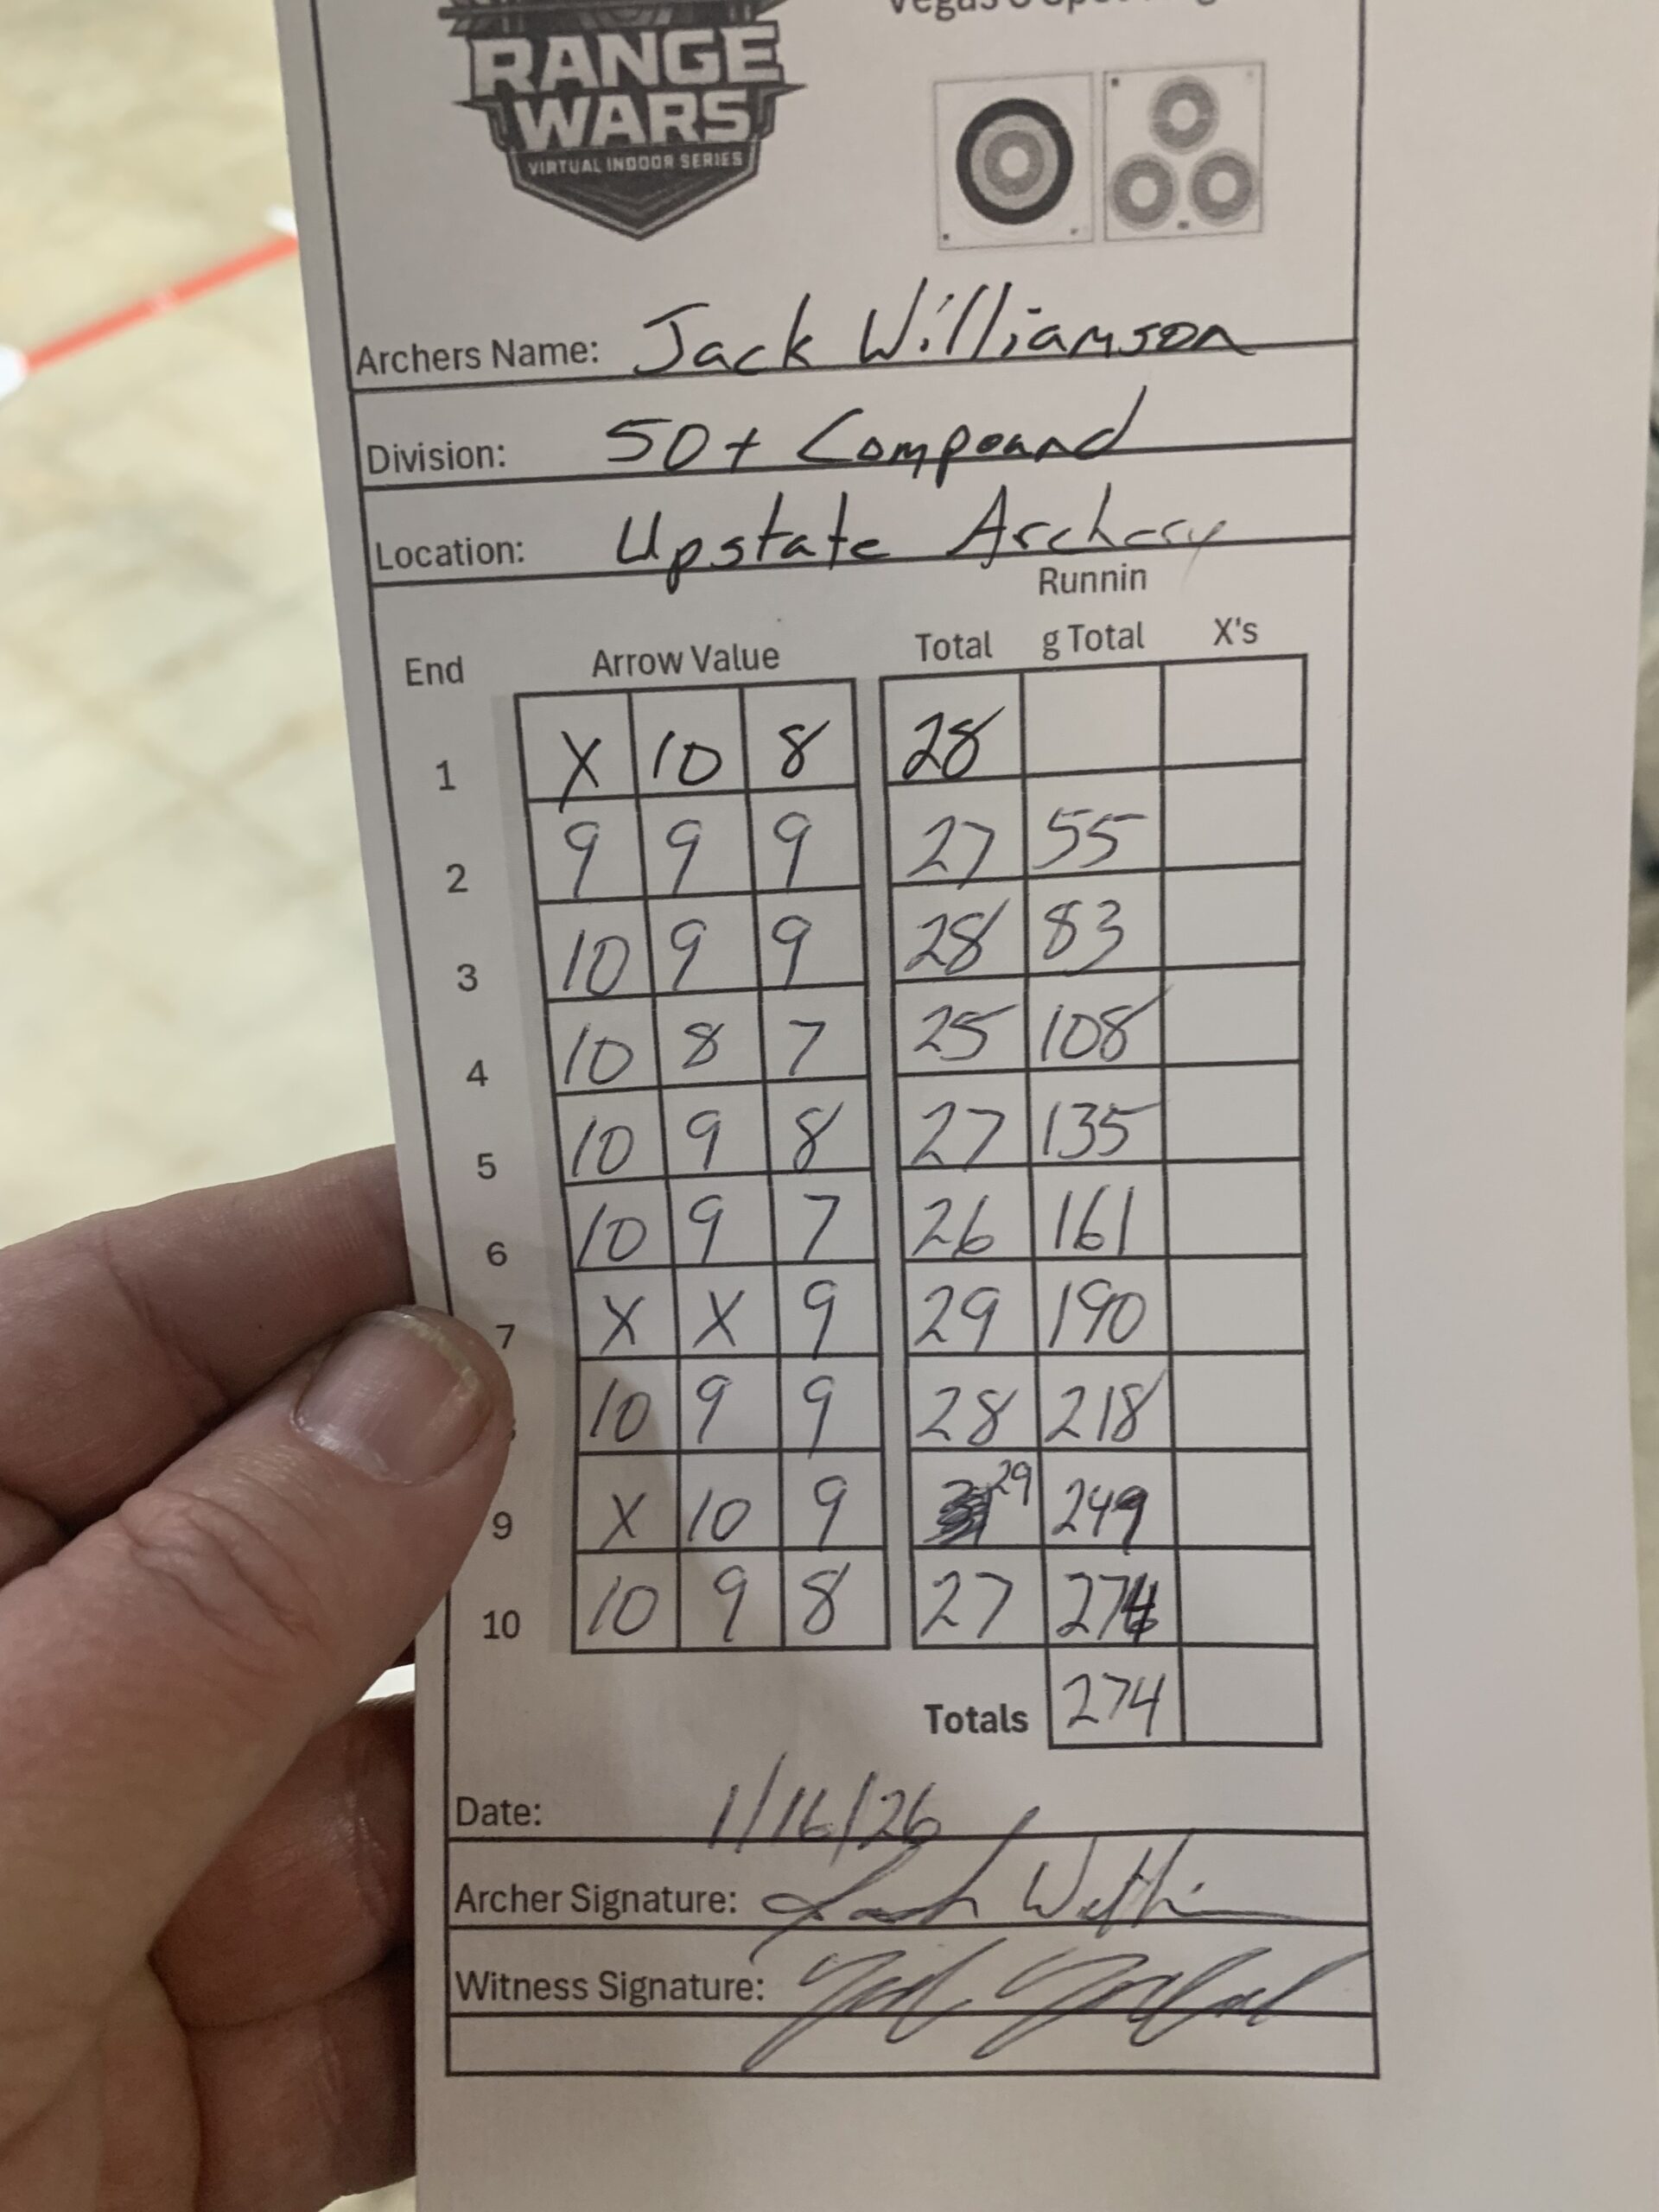 RANGE
WARS
VIRTUAL INDOOR SERIES
Archers Name: Jack Williamson
Division: 50+ Compound
Location: Upstate Archery
Runnin
End Arrow Value Total g Total X's
1 X 10 8 28
2 9 9 9 27 55
3 10 9 9 28 83
4 10 8 7 25 108
5 10 9 8 27 135
6 10 9 7 26 161
7 X X 9 29 190
10 9 9 28 218
9 X 10 9 29 249
10 10 9 8 27 274
Totals 274
Date: 1/16/26
Archer Signature:
Witness Signature: